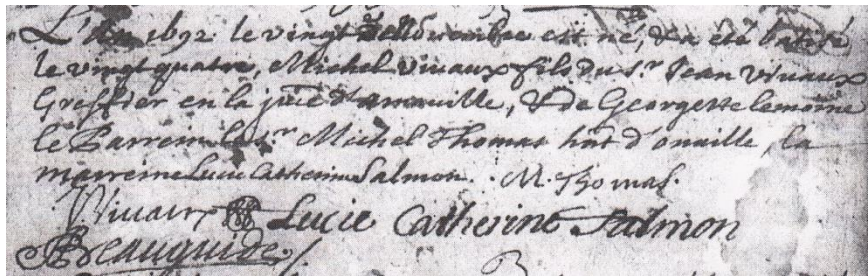 L'An 1692 le vingt de Novembre est né, & a été batisé
le vingt quatre, Michel Vivaux fils du s.r Jean Vivaux
Greffier en la d'amauville, & de Georgette lemoine
le Parrein le s.r Michel Thomas d'onville, la
marreine Lucie Catherine Salmon. M. Thomas.
Vivaux Lucie Catherine Salmon
Beauguide